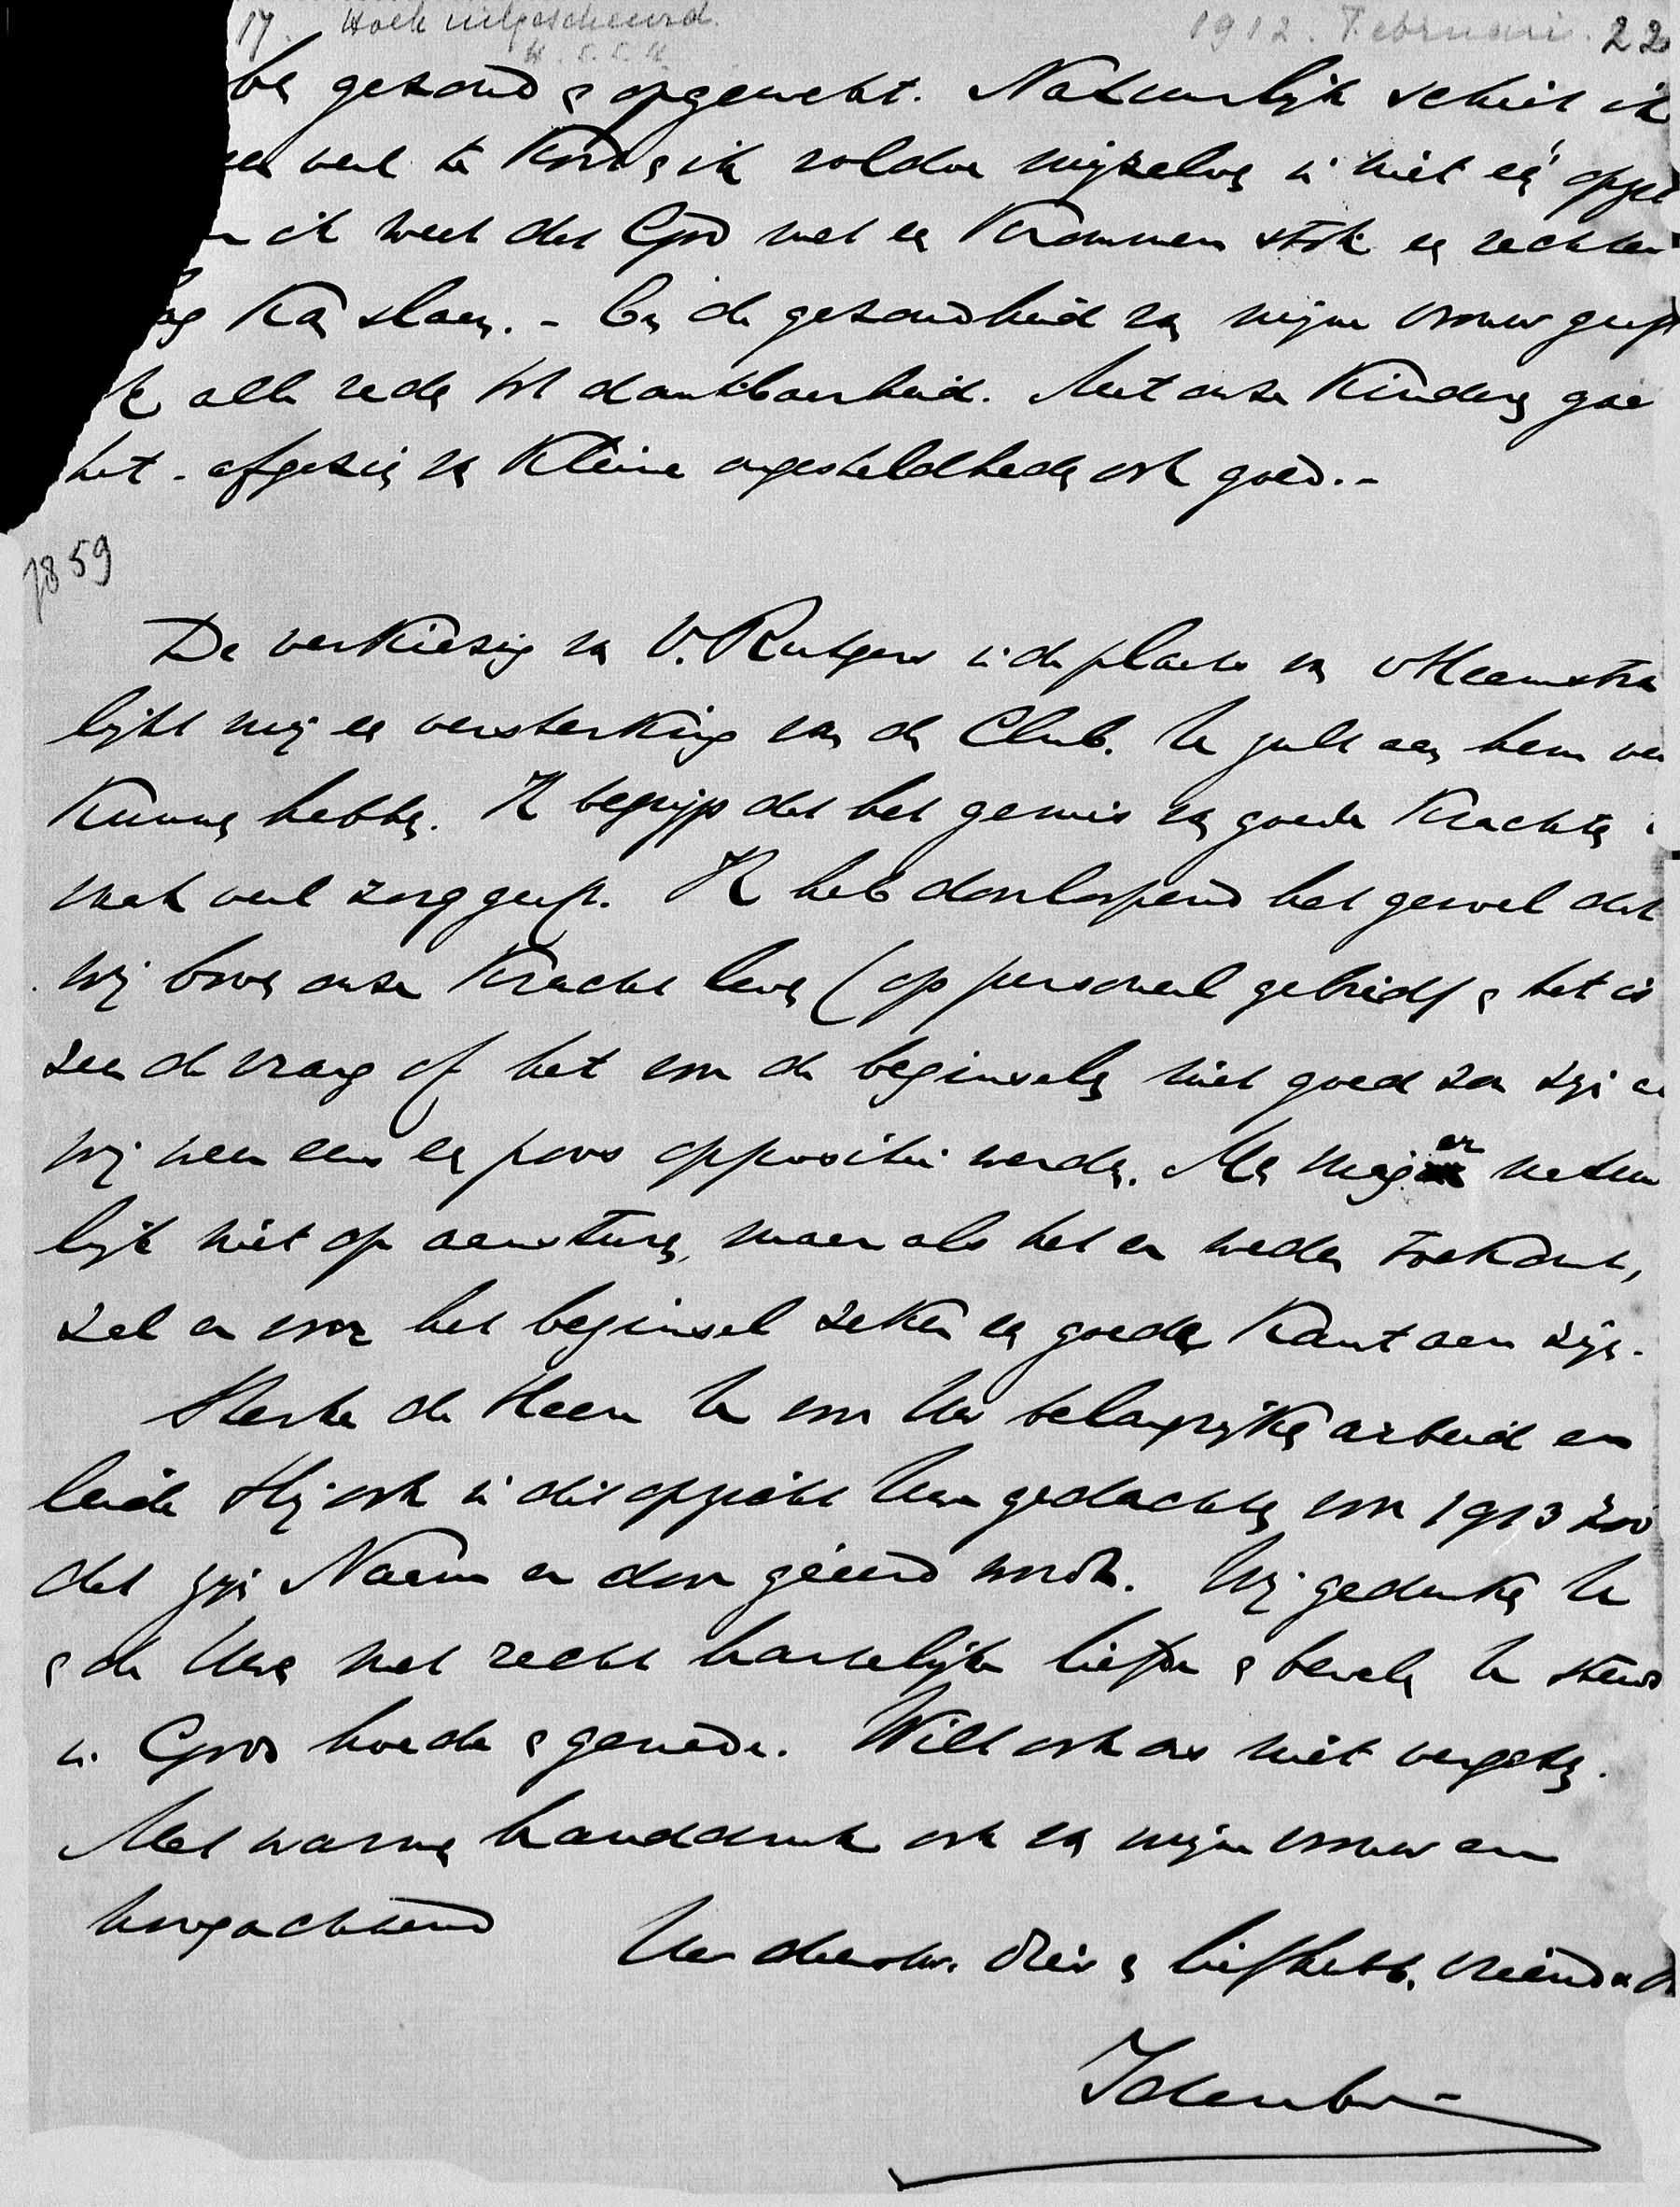 17. Hoek uitgescheurd. 1912. Februari. 22
H.S.S.K.
ben gezond & opgewekt. Natuurlijk schiet ik
veel te kort & ik voldoe mijzelve in niet één opzi
ik weet dat God met een krommen stok een rechten
slag kan slaan. - En de gezondheid van mijne vrouw geeft
ook alle reden tot dankbaarheid. Met onze kinderen gaa
het - afgezien van kleine ongesteldheden ook goed. -
7859
De verkiezing van V. Rutgers in de plaats van v Heemstra
lijkt mij een versterking van de Club. U zult aan hem veel
kunnen hebben. Ik begrijp dat het gemis van goede krachten
vaak veel zorg geeft. Ik heb doorloopend het gevoel dat
wij boven onze kracht leven (op personeel gebied) & het is
zeer de vraag of het voor de beginselen niet goed zou zijn als
wij weer eens een poos oppositie werden. Men mag er natuur
lijk niet op aansturen, maar als het er weder toe komt,
zal er voor het beginsel zeker een goede kant aan zijn.
Sterke de Heere U voor Uw belangrijken arbeid en
leide Hij ook in dit opzicht Uwe gedachten voor 1913 zoo
dat zijn Naam er door geëerd wordt. Wij gedenken U
& de Uwen met recht hartelijke liefde & bevelen U steeds
in Gods hoede & genade. Wilt ook ons niet vergeten.
Met warmen handdruk ook van mijne vrouw en
hoogachtend Uw dienstw. dien. & liefhebb. vriend
Idenburg